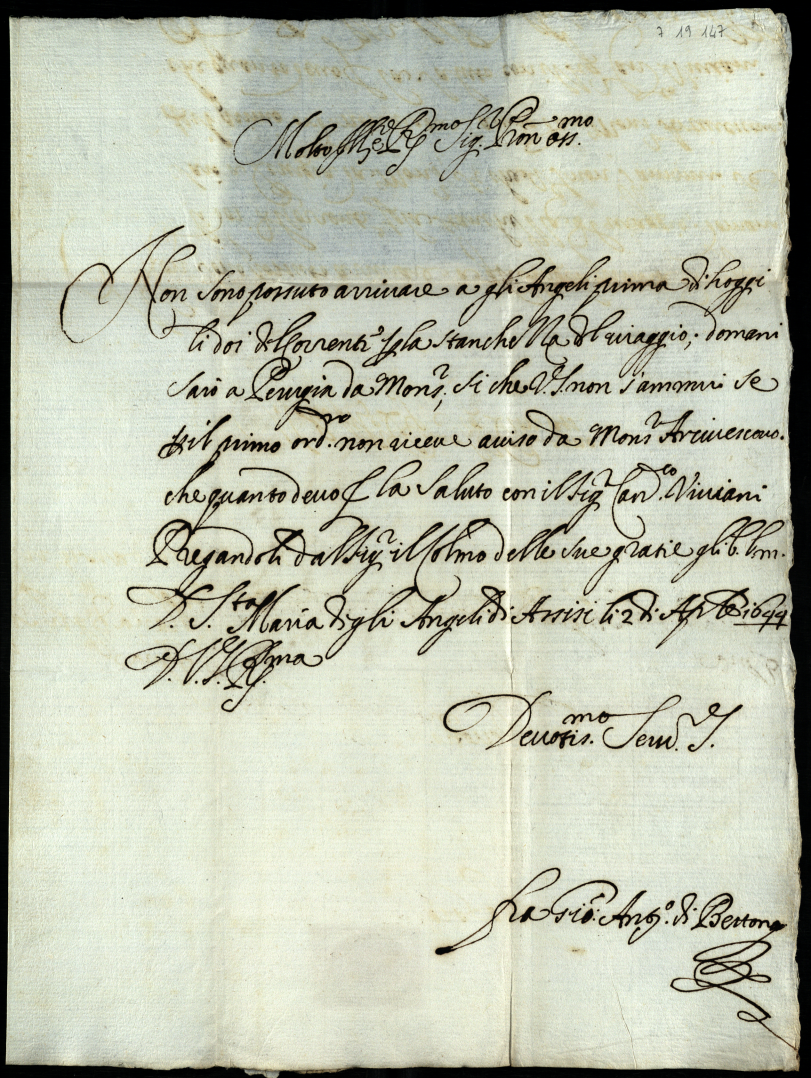 7 19 147
Molto Ill.re R.mo Sig.r P̃ron oss.mo
Non sono possuto arrivare a gli Angeli prima di hoggi
li doi del corrente p la stanchezza del viaggio; domani
sarò a Perugia da Mons.r, si che V.S. non s'ammiri se
p il primo ord.ro non riceve aviso da Mons.r Arcivescovo.
che quanto devo p la saluto con il Sig.r Can.co Viviani
Pregandoli dal Sig.r il colmo delle sue gratie gli b. l. m.
D. S.ta Maria degli Angeli di Assisi li 2 di Ap.le 1644
D. V. S. R.ma
Devotis.mo Serv.re
Fra Gio: Ant.o di